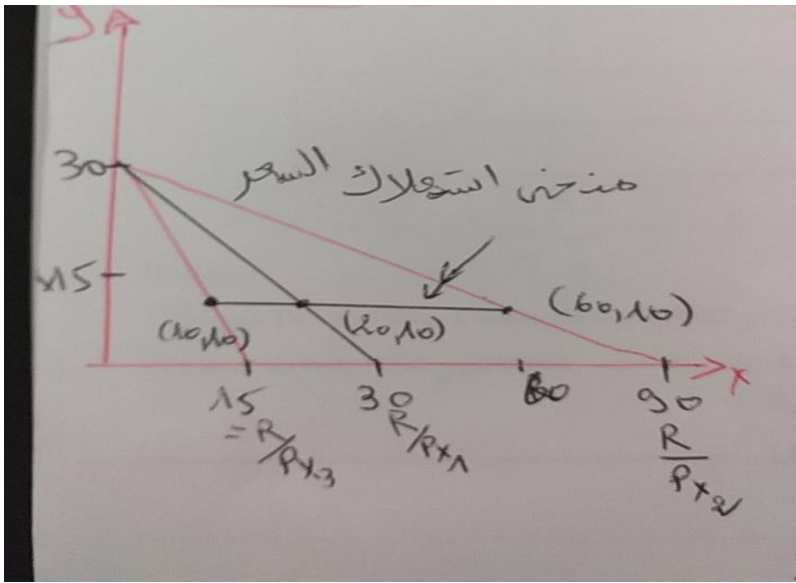 y
30
منحنى استهلاك السعر
15
(10,10)
(20,10)
(60,10)
x
15
= R/Px3
30
R/Px1
60
90
R
Px2